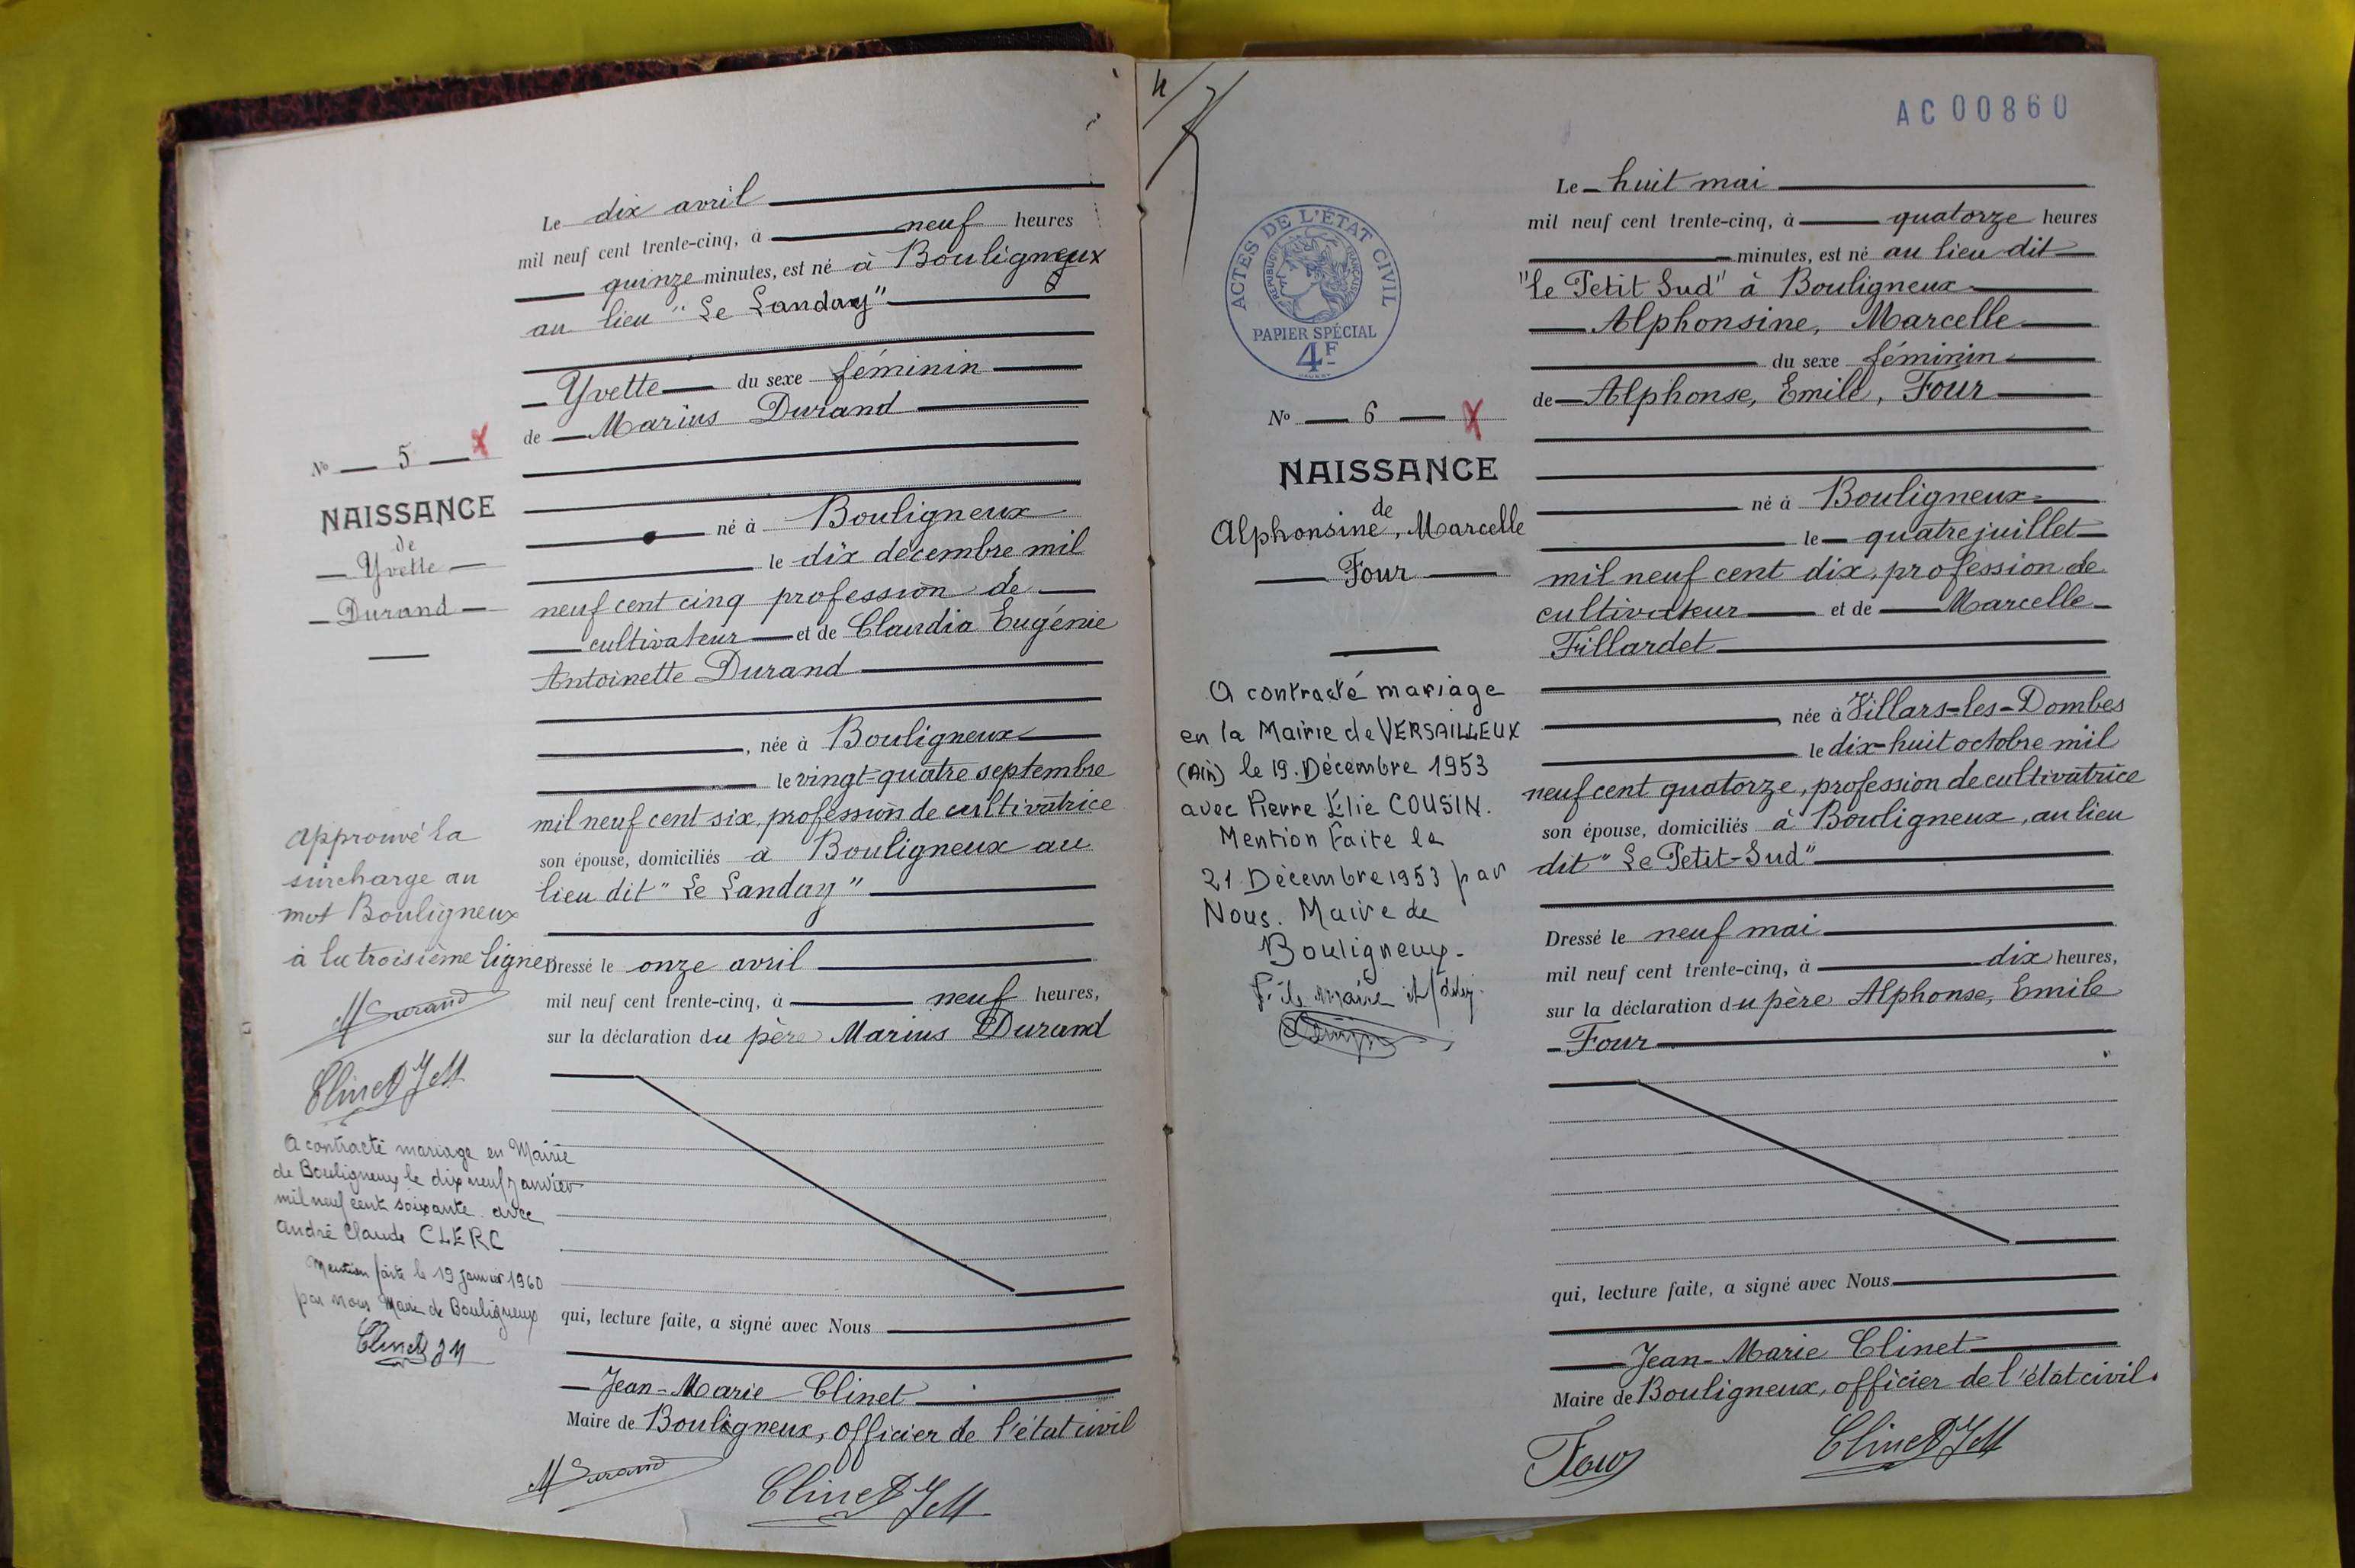 N° 5 X
NAISSANCE
de
Yvette
Durand
Approuvé la
surcharge au
mot Bouligneux
à la troisième ligne
M Durand
Clinet JM
A contracté mariage en Mairie
de Bouligneux le dix neuf janvier
mil neuf cent soixante avec
André Claude CLERC
Mention faite le 19 janvier 1960
par nous Maire de Bouligneux
Clinet JM
Le dix avril
mil neuf cent trente-cinq, à neuf heures
quinze minutes, est né à Bouligneux
au lieu "Le Landay"
Yvette du sexe féminin
de Marius Durand
né à Bouligneux
le dix décembre mil
neuf cent cinq profession de
cultivateur et de Claudia Eugénie
Antoinette Durand
, née à Bouligneux
le vingt-quatre septembre
mil neuf cent six, profession de cultivatrice
son épouse, domiciliés à Bouligneux au
lieu dit "Le Landay"
Dressé le onze avril
mil neuf cent trente-cinq, à neuf heures,
sur la déclaration du père Marius Durand
qui, lecture faite, a signé avec Nous
Jean-Marie Clinet
Maire de Bouligneux, officier de l'état civil
M Durand
Clinet JM
AC 00860
ACTES DE L'ÉTAT CIVIL
RÉPUBLIQUE FRANÇAISE
PAPIER SPÉCIAL
4F
N° 6 X
NAISSANCE
de
Alphonsine, Marcelle
Four
A contracté mariage
en la Mairie de VERSAILLEUX
(Ain) le 19. Décembre 1953
avec Pierre Élie COUSIN.
Mention faite le
21 Décembre 1953 par
Nous. Maire de
Bouligneux-
Le huit mai
mil neuf cent trente-cinq, à quatorze heures
minutes, est né au lieu dit
"le Petit Sud" à Bouligneux
Alphonsine, Marcelle
du sexe féminin
de Alphonse, Emile, Four
né à Bouligneux
le quatre juillet
mil neuf cent dix, profession de
cultivateur et de Marcelle
Fillardet
, née à Villars-les-Dombes
le dix-huit octobre mil
neuf cent quatorze, profession de cultivatrice
son épouse, domiciliés à Bouligneux, au lieu
dit "Le Petit-Sud"
Dressé le neuf mai
mil neuf cent trente-cinq, à dix heures,
sur la déclaration du père Alphonse, Emile
Four
qui, lecture faite, a signé avec Nous
Jean-Marie Clinet
Maire de Bouligneux, officier de l'état civil.
Four
Clinet JM